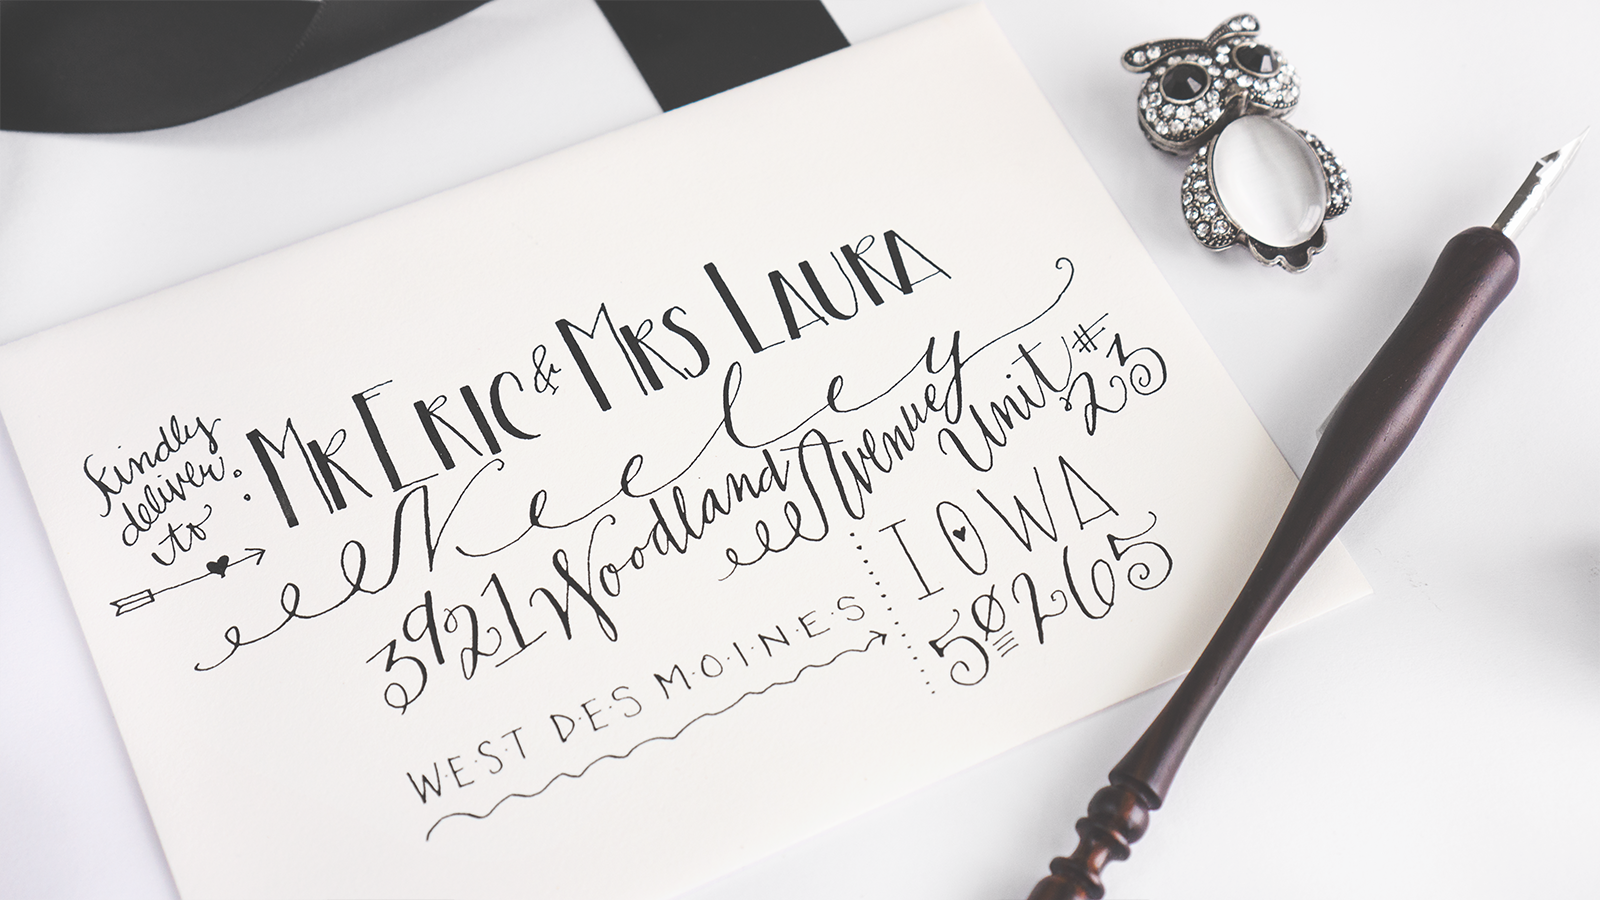 Kindly
deliver
to:
MR ERIC & MRS LAURA
Neeley
3921 Woodland Avenue Unit #23
WEST DES MOINES
IOWA
50265